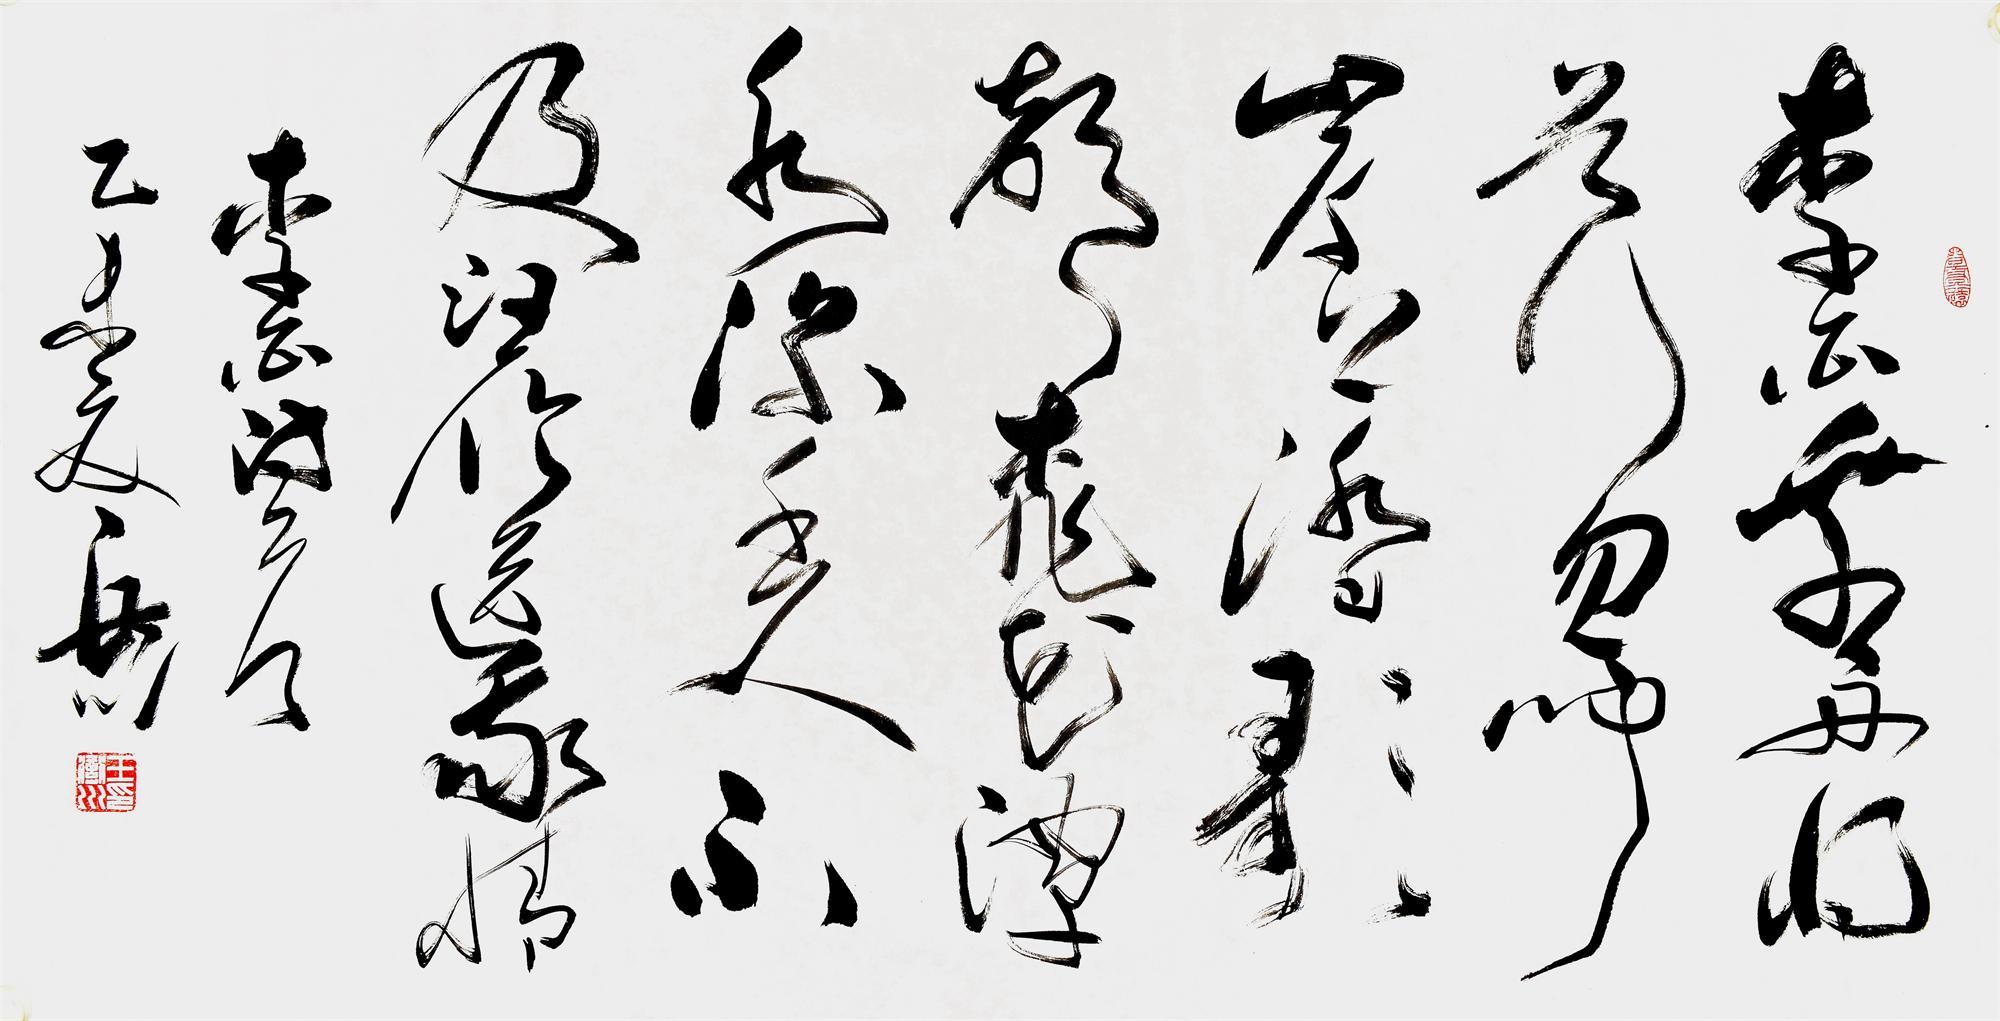 李白乘舟將
欲行忽聞
岸上踏歌
聲桃花潭
水深千尺不
及汪倫送我情
李白詩一首
乙未夏岳川